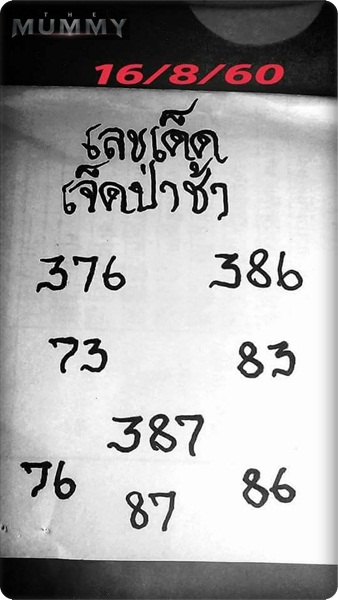 THE
MUMMY
16/8/60
เลขเด็ด
เจ็ดป่าช้า
376 386
73 83
387
76 86
87